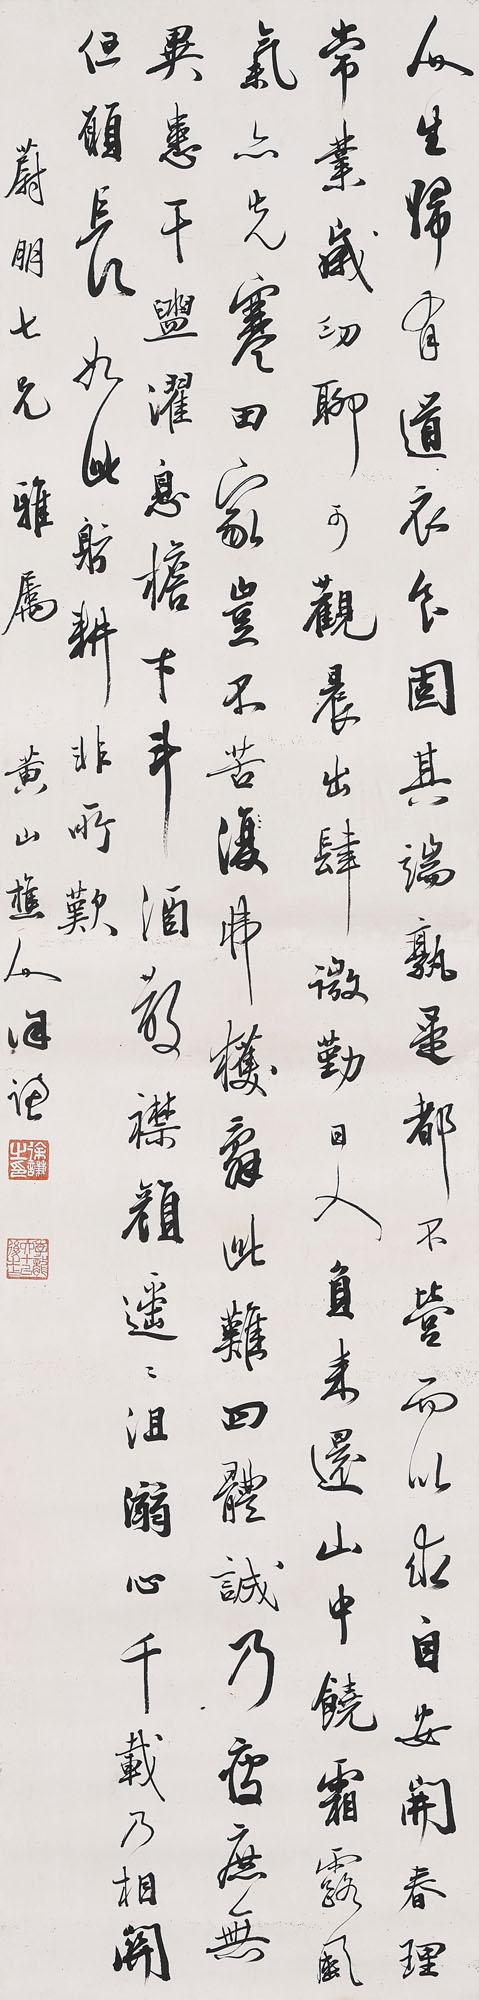 人生歸有道衣食固其端孰是都不營而以求自安開春理
常業歲功聊可觀晨出肆微勤日入負耒還山中饒霜露風
氣亦先寒田家豈不苦復弗獲辭此難四體誠乃疲庶無
異患干盥濯息檐下斗酒散襟顏遥〻沮溺心千載乃相關
但願長如此躬耕非所歎
蔚明七兄雅屬 黃山樵人徐謙
徐謙之印